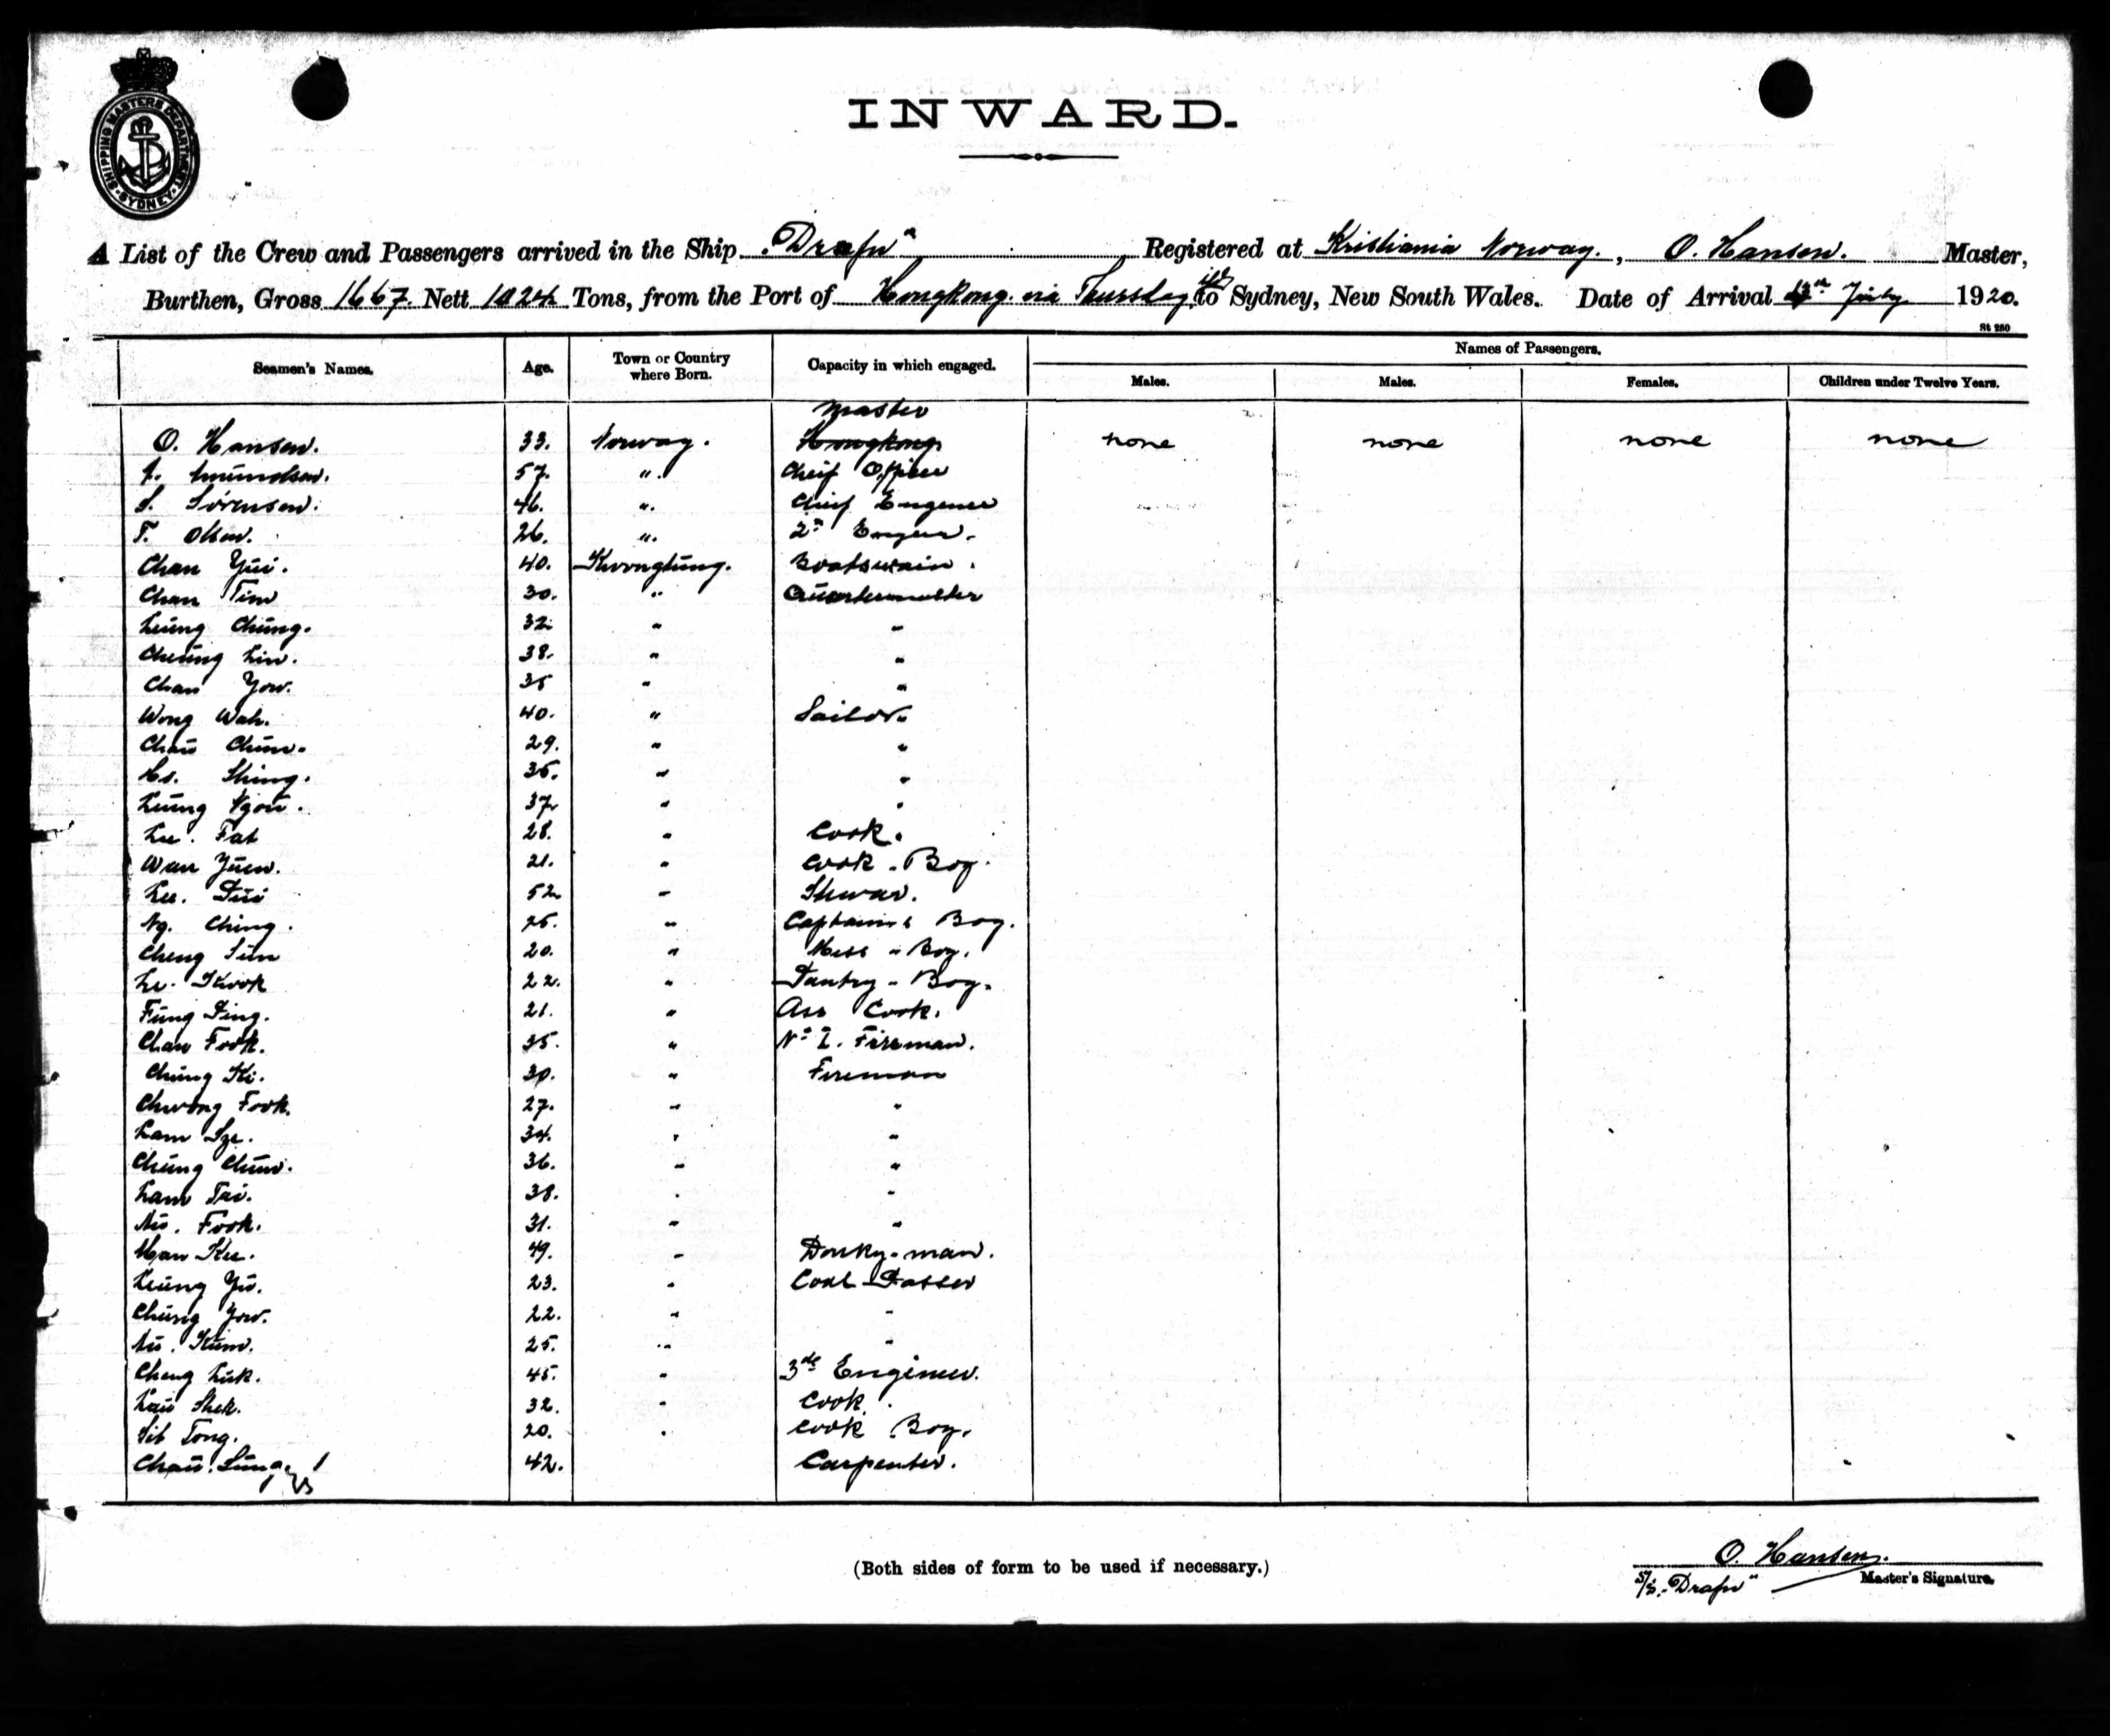 SHIPPING MASTERS DEPARTMENT
SYDNEY
INWARD.
A List of the Crew and Passengers arrived in the Ship "Drafn" Registered at Kristiania Norway., O. Hansen. Master,
Burthen, Gross 1667. Nett 1024 Tons, from the Port of Hongkong. via Thursday ild to Sydney, New South Wales. Date of Arrival July 1920.
St 250
Seamen's Names. Age. Town or Country where Born. Capacity in which engaged. Names of Passengers.
Males. Males. Females. Children under Twelve Years.
Master
O. Hansen. 33. Norway. Hongkong none none none none
Amundsen. 57. ". Cheif Officer
S. Sörensen. 46. ". Chief Engener
T. Olsen. 26. ". 2n
Chan Yüi. 40. Kwongtüng. Boatswain.
Chan Tim 30. " Quartermaster
Leüng Chüng. 32. " "
Cheüng Lin. 38. " "
Chan Yow. 35 " "
Wong Wah. 40. " Sailor.
Chaü Chün. 29. " "
Ho. Shing. 35. " "
Leüng Ngoü. 37. " "
Lee. Fat 28. " Cook.
Wan Yüen. 21. " Cook - Boy.
Lee. Püi 52 " Stewar.
Ng. Ching. 25. " Captain's Boy.
Cheng Sün 20. " Mess - Boy.
Le. Kwok 22. " Pantry - Boy.
Füng Ping. 21. " Ass Cook.
Chan Fook. 35. " No 1. Fireman.
Chüng Ki. 30. " Fireman
Chwong Fook. 27. " "
Lam Sze. 34. " "
Chüng Chün. 36. " "
Lam Tai. 38. " "
Aü. Fook. 31. " "
Man Kee. 49. " Donky-man.
Leüng Yü. 23. " Coal Passer
Chüng Yow. 22. " "
Aü. Küm. 25. " "
Cheng Lük. 45. " 3de Engineer.
Laü Shek. 32. " Cook.
Sit Tong. 20. " Cook Boy.
Chaü. Süng. 42. Carpenter.
(Both sides of form to be used if necessary.)
O. Hansen.
S/S. "Drafn" Master's Signature.